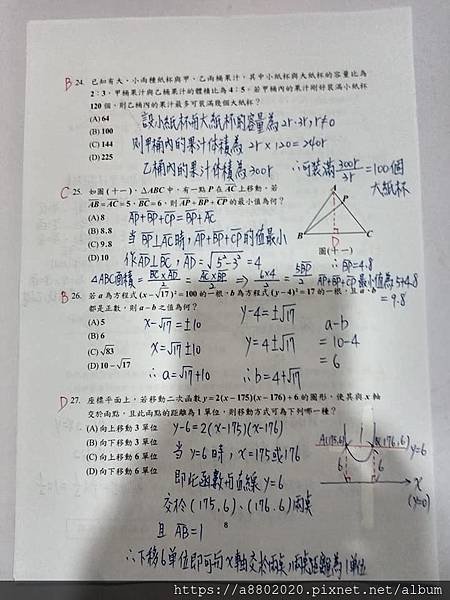 B 24. 已知有大、小兩種紙杯與甲、乙兩桶果汁,其中小紙杯與大紙杯的容量比為
2:3,甲桶果汁與乙桶果汁的體積比為4:5。若甲桶內的果汁剛好裝滿小紙杯
120個,則乙桶內的果汁最多可裝滿幾個大紙杯?
(A) 64 設小紙杯與大紙杯的容量為2r、3r, r≠0
(B) 100
(C) 144 則甲桶內的果汁体積為 2r×120=240r
(D) 225 乙桶內的果汁体積為300r ∴可裝滿 300r/3r =100個
大紙杯
C 25. 如圖(十一),△ABC中,有一點P在AC上移動。若
AB=AC=5,BC=6,則AP+BP+CP的最小值為何?
(A) 8 AP+BP+CP=BP+AC
(B) 8.8
(C) 9.8 當BP⊥AC時,AP+BP+CP的值最小
(D) 10 作AD⊥BC, AD=√5²-3²=4
A
P
B D C
圖(十一)
∴BP=4.8
△ABC面積= BC×AD/2 = AC×BP/2 ⇒ 6×4/2 = 5BP/2 AP+BP+CP最小值為5+4.8
=9.8
B 26. 若a為方程式(x-√17)²=100的一根,b為方程式(y-4)²=17的一根,且a、b
都是正數,則a-b之值為何?
(A) 5 x-√17=±10 y-4=±√17 a-b
(B) 6
(C) √83 x=√17±10 y=4±√17 =10-4
(D) 10-√17 =6
∴a=√17+10 ∴b=4+√17
D 27. 座標平面上,若移動二次函數y=2(x-175)(x-176)+6的圖形,使其與x軸
交於兩點,且此兩點的距離為1單位,則移動方式可為下列哪一種?
(A) 向上移動3單位 y-6=2(x-175)(x-176)
(B) 向下移動3單位
(C) 向上移動6單位 當y=6時,x=175或176
(D) 向下移動6單位
即此函數與直線y=6
交於(175,6)、(176,6)兩点
且 AB=1
A(175,6) B(176,6) y=6
6 6
x
(y=0)
8
∴下移6單位即可與x軸交於兩点,兩点距離為1單位
https://a8802020.pixnet.net/album